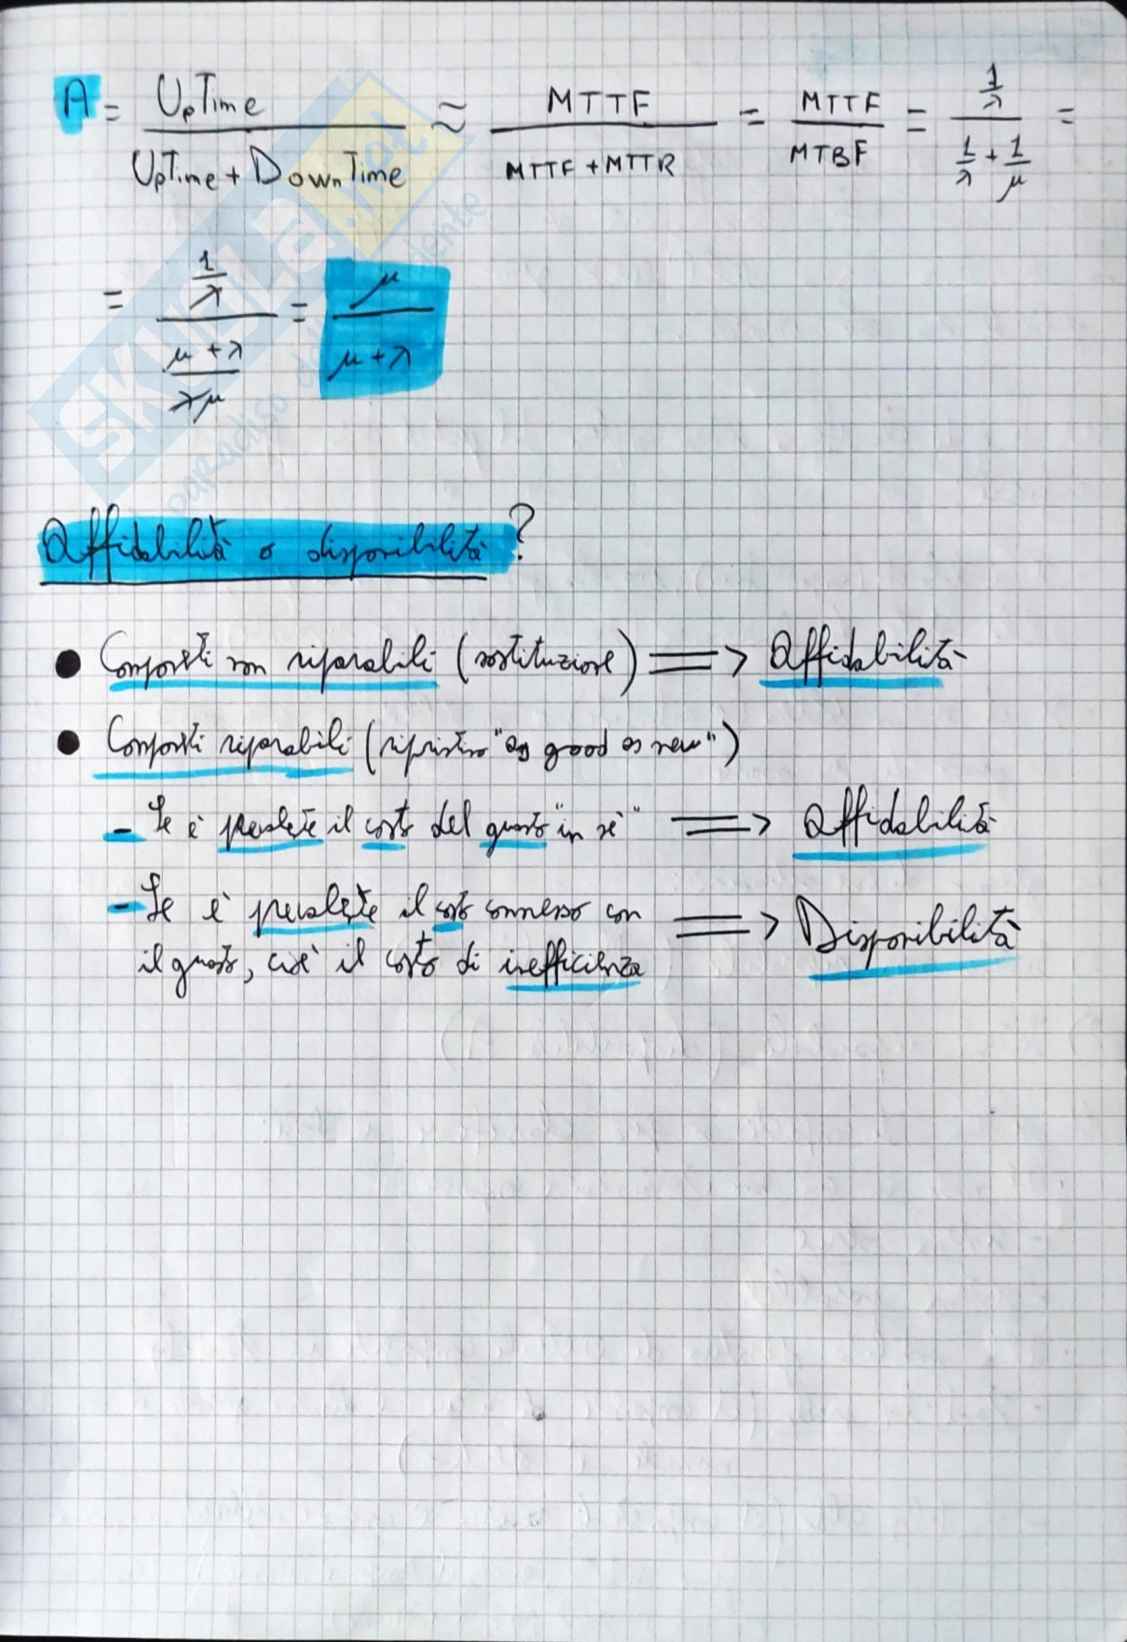 A = UpTime / (UpTime + DownTime) ≈ MTTF / (MTTF + MTTR) = MTTF / MTBF = (1/λ) / (1/λ + 1/μ) =
= (1/λ) / ((μ + λ) / λμ) = μ / (μ + λ)
SKUOLA.net
paradiso dello studente
Affidabilità o disponibilità?
● Componenti non riparabili (sostituzione) => Affidabilità
● Componenti riparabili (ripristino "as good as new")
- Se è prevalente il costo del guasto "in sè" => Affidabilità
- Se è prevalente il costo connesso con => Disponibilità
il guasto, cioè il costo di inefficienza